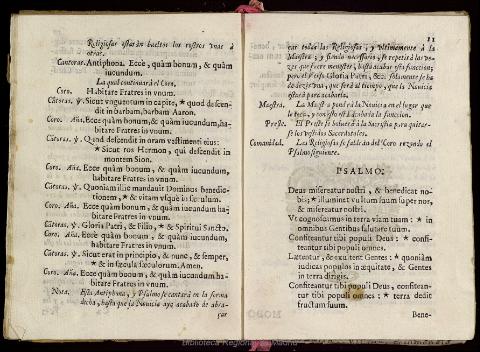 Religiosas estarán bueltos los rostros unas à
otras.
Cantoras. Antiphona. Eccè, quàm bonum, & quàm
iucundum.
La qual continuarà el Coro.
Coro. Habitare Fratres in vnum.
Cātoras. ℣. Sicut vnguentum in capite, * quod descen-
dit in barbam, barbam Aaron.
Coro. Aña. Ecce quàm bonum, & quàm iucundum, ha-
bitare Fratres in vnum.
Cātoras. ℣. Quod descendit in oram vestimenti eius:
* Sicut ros Hermon, qui descendit in
montem Sion.
Coro. Aña. Ecce quàm bonum, & quàm iucundum, ha-
bitare Fratres in vnum.
Cātoras. ℣. Quoniam illic mandauit Dominus benedic-
tionem, * & vitam vsque in sæculum.
Coro. Aña. Ecce quàm bonum, & quàm iucundum ha-
bitare Fratres in vnum.
Cātoras. ℣. Gloria Patri, & Filio, * & Spiritui Sancto.
Coro. Aña. Ecce quàm bonum, & quàm iucundum,
habitare Fratres in vnum.
Cātoras. ℣. Sicut erat in principio, & nunc, & semper,
* & in sæcula sæculorum. Amen.
Coro. Aña. Ecce quàm bonum, & quàm iucundum ha-
bitare Fratres in vnum.
Nota. Esta Antiphona, y Psalmo se cantarà en la forma
dicha, hasta que la Nouicia aya acabado de abra-
çar
11
çar todas las Religiosas, y vltimamente à la
Maestra; y siendo necessario, se repetirà las ve-
zes que fuere menester, hasta acabar esta funcion;
pero el verso Gloria Patri, &c. solamente se ha
de dezir vna, que serà al tiempo, que la Nouicia
estarà para acabarla.
Maestra. La Maestra pondrà la Nouicia en el lugar que
le toca, y con esto està acabada la funcion.
Preste. El Preste se boluerà à la Sacristia para quitar-
se los vestidos Sacerdotales.
Comunidad. Las Religiosas se saldràn del Coro rezando el
Psalmo siguiente.
PSALMO:
Deus misereatur nostri, & benedicat no-
bis; * illuminet vultum suum super nos,
& misereatur nostri.
Vt cognoscamus in terra viam tuam: * in
omnibus Gentibus salutare tuum.
Confiteantur tibi populi Deus: * confi-
teantur tibi populi omnes.
Lætentur, & exultent Gentes: * quoniàm
iudicas populos in æquitate, & Gentes
in terra dirigis.
Confiteantur tibi populi Deus, confitean-
tur tibi populi omnes: * terra dedit
fructum suum.
Bene-
Biblioteca Regional de Madrid